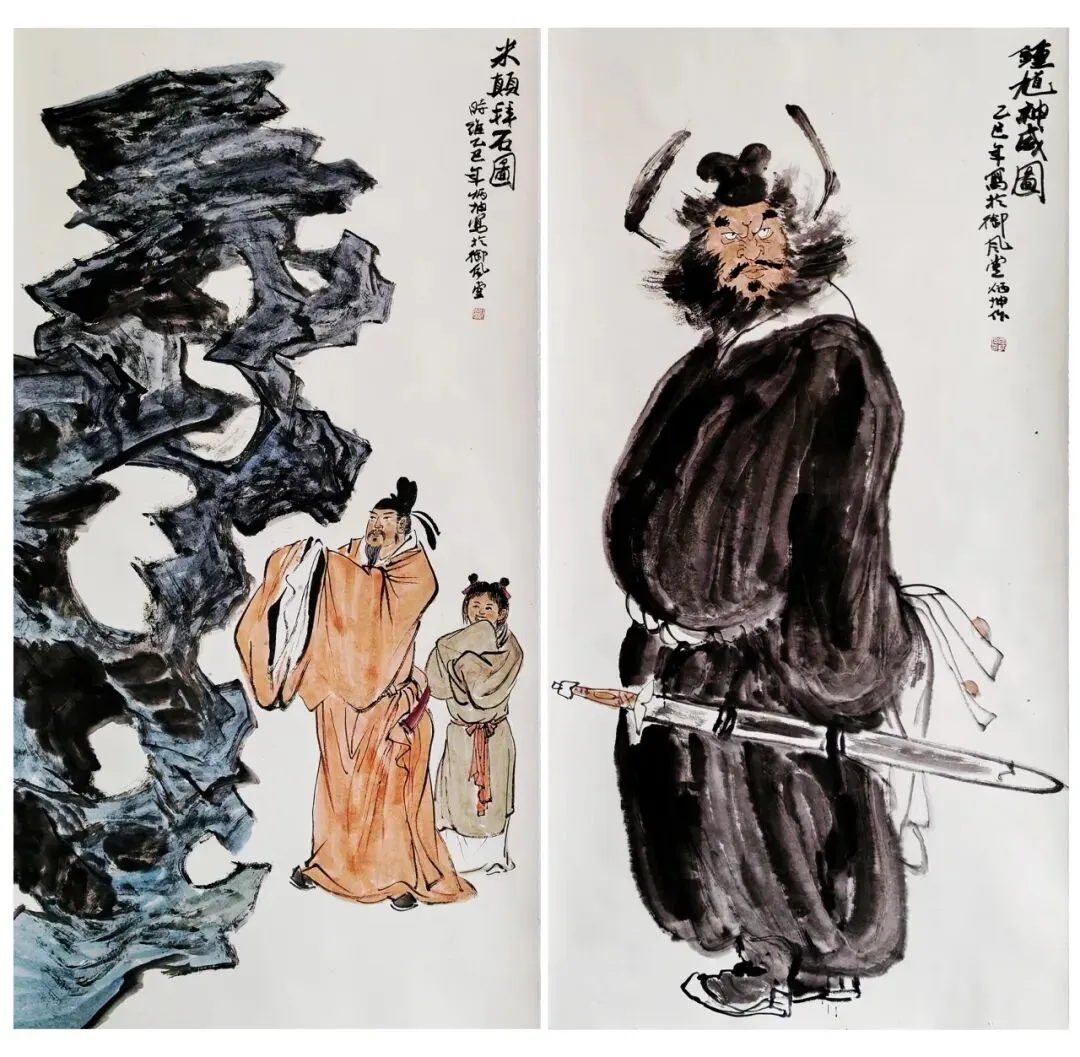 米顛拜石圖
時維乙巳年炳坤寫於御風堂
鍾馗神威圖
乙巳年寫於御風堂炳坤作